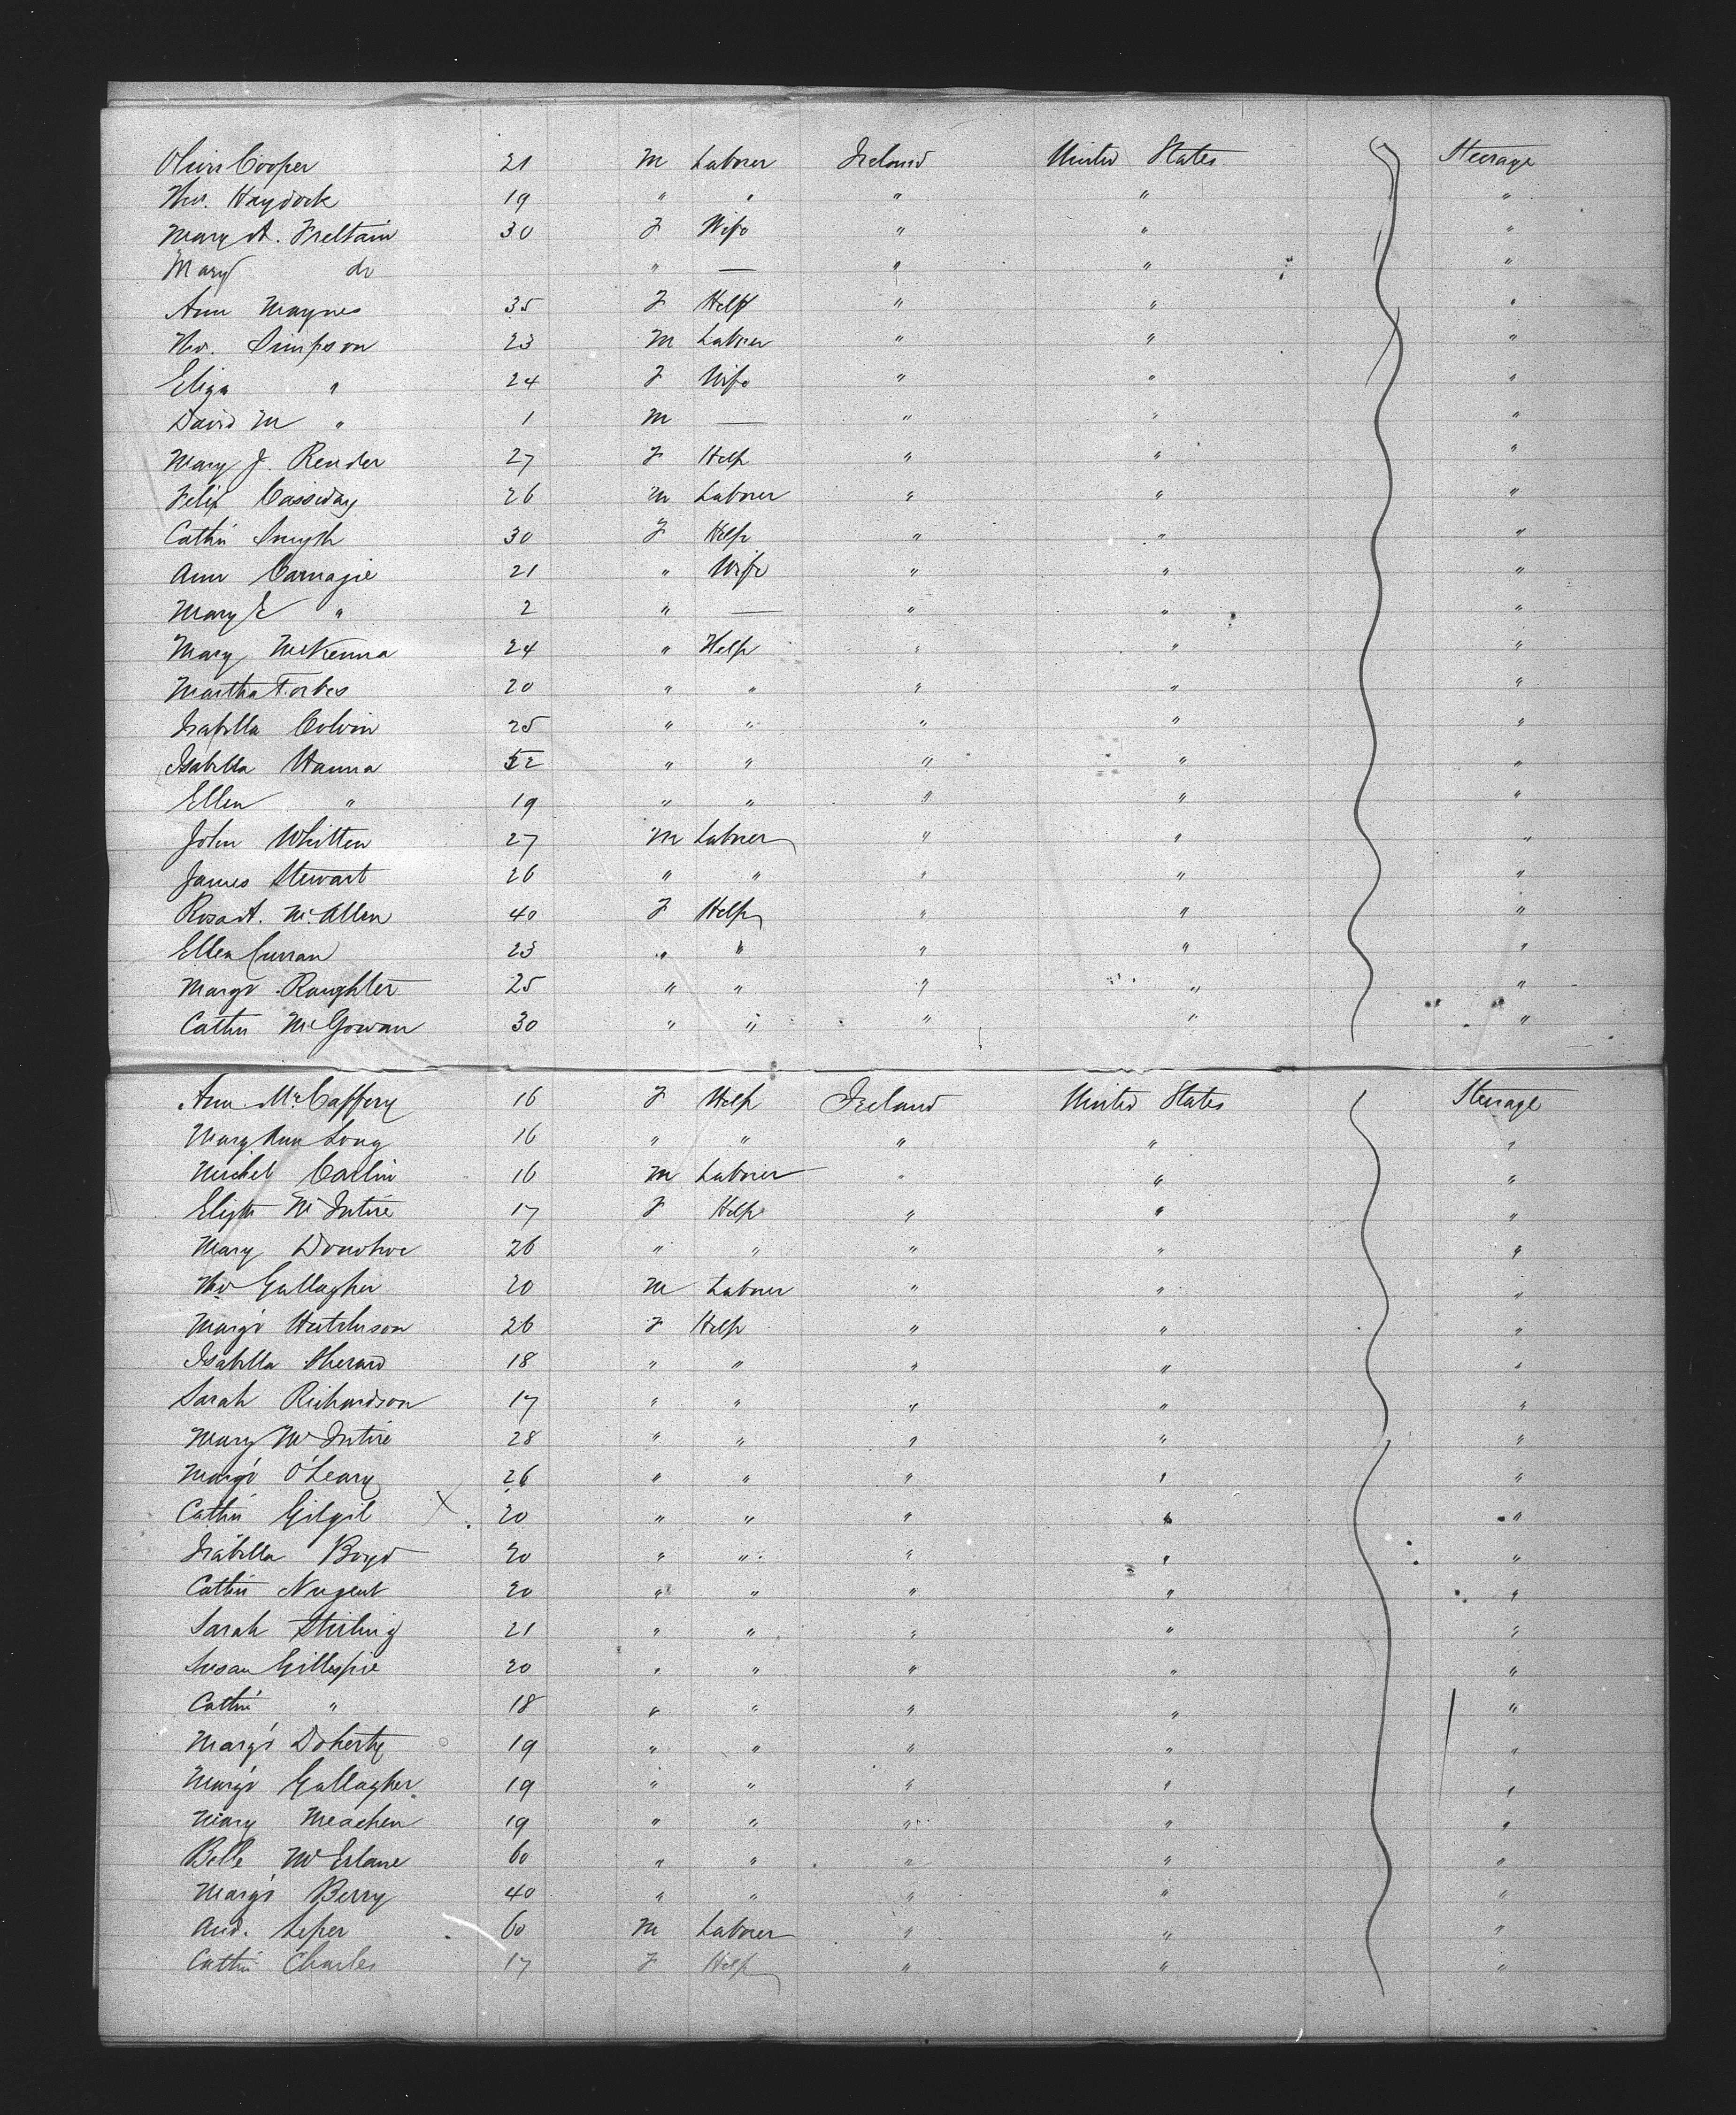 Oliver Cooper 21 M Laborer Ireland United States Steerage
Tho. Haydock 19 " " " " "
Mary A. Freltain 30 F Wife " " "
Mary do " — " " "
Ann Maynes 35 F Help " " "
Tho. Simpson 23 M Laborer " " "
Eliza " 24 F Wife " " "
David M " 1 M — " " "
Mary J. Render 27 F Help " " "
Felix Cassiday 26 M Laborer " " "
Cathn Smyth 30 F Help " " "
Ann Carnagie 21 " Wife " " "
Mary E " 2 " — " " "
Mary McKenna 24 " Help " " "
Martha Forbes 20 " " " " "
Isabella Colvin 25 " " " " "
Isabella Hanna " " " " "
Ellen " 19 " " " " "
John Whitten 27 M Laborer " " "
James Stewart 26 " " " " "
Rosa A. McAllen 40 F Help " " "
Ellen Curran 23 " " " " "
Margt Raughter 25 " " " " "
Cathn McGowan 30 " " " " "
Ann McCaffery 16 F Help Ireland United States Steerage
Mary Ann Long 16 " " " " "
Michel Carlin 16 M Laborer " " "
Elizth McIntire 17 F Help " " "
Mary Donohoe 26 " " " " "
Tho Gallagher 20 M Laborer " " "
Margt Hutchison 26 F Help " " "
Isabella Sherard 18 " " " " "
Sarah Richardson 17 " " " " "
Mary McIntire 28 " " " " "
Margt O'Leary 26 " " " " "
Cathn Gilgil X 20 " " " " "
Isabella Boyd 20 " " " " "
Cathn Nugent 20 " " " " "
Sarah Stirling 21 " " " " "
Susan Gillespie 20 " " " " "
Cathn " 18 " " " " "
Margt Doherty 19 " " " " "
Margt Gallagher 19 " " " " "
Mary Meachen 19 " " " " "
Belle McErlane 60 " " " " "
Margt Berry 40 " " " " "
And. Leper 60 M Laborer " " "
Cathn Charles 17 F Help " " "